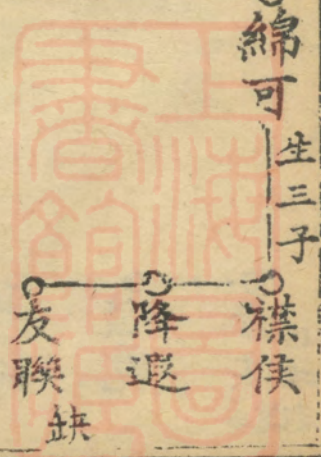 綿可
生三子
襟侯
降遐
友聯
缺
上海圖書館藏